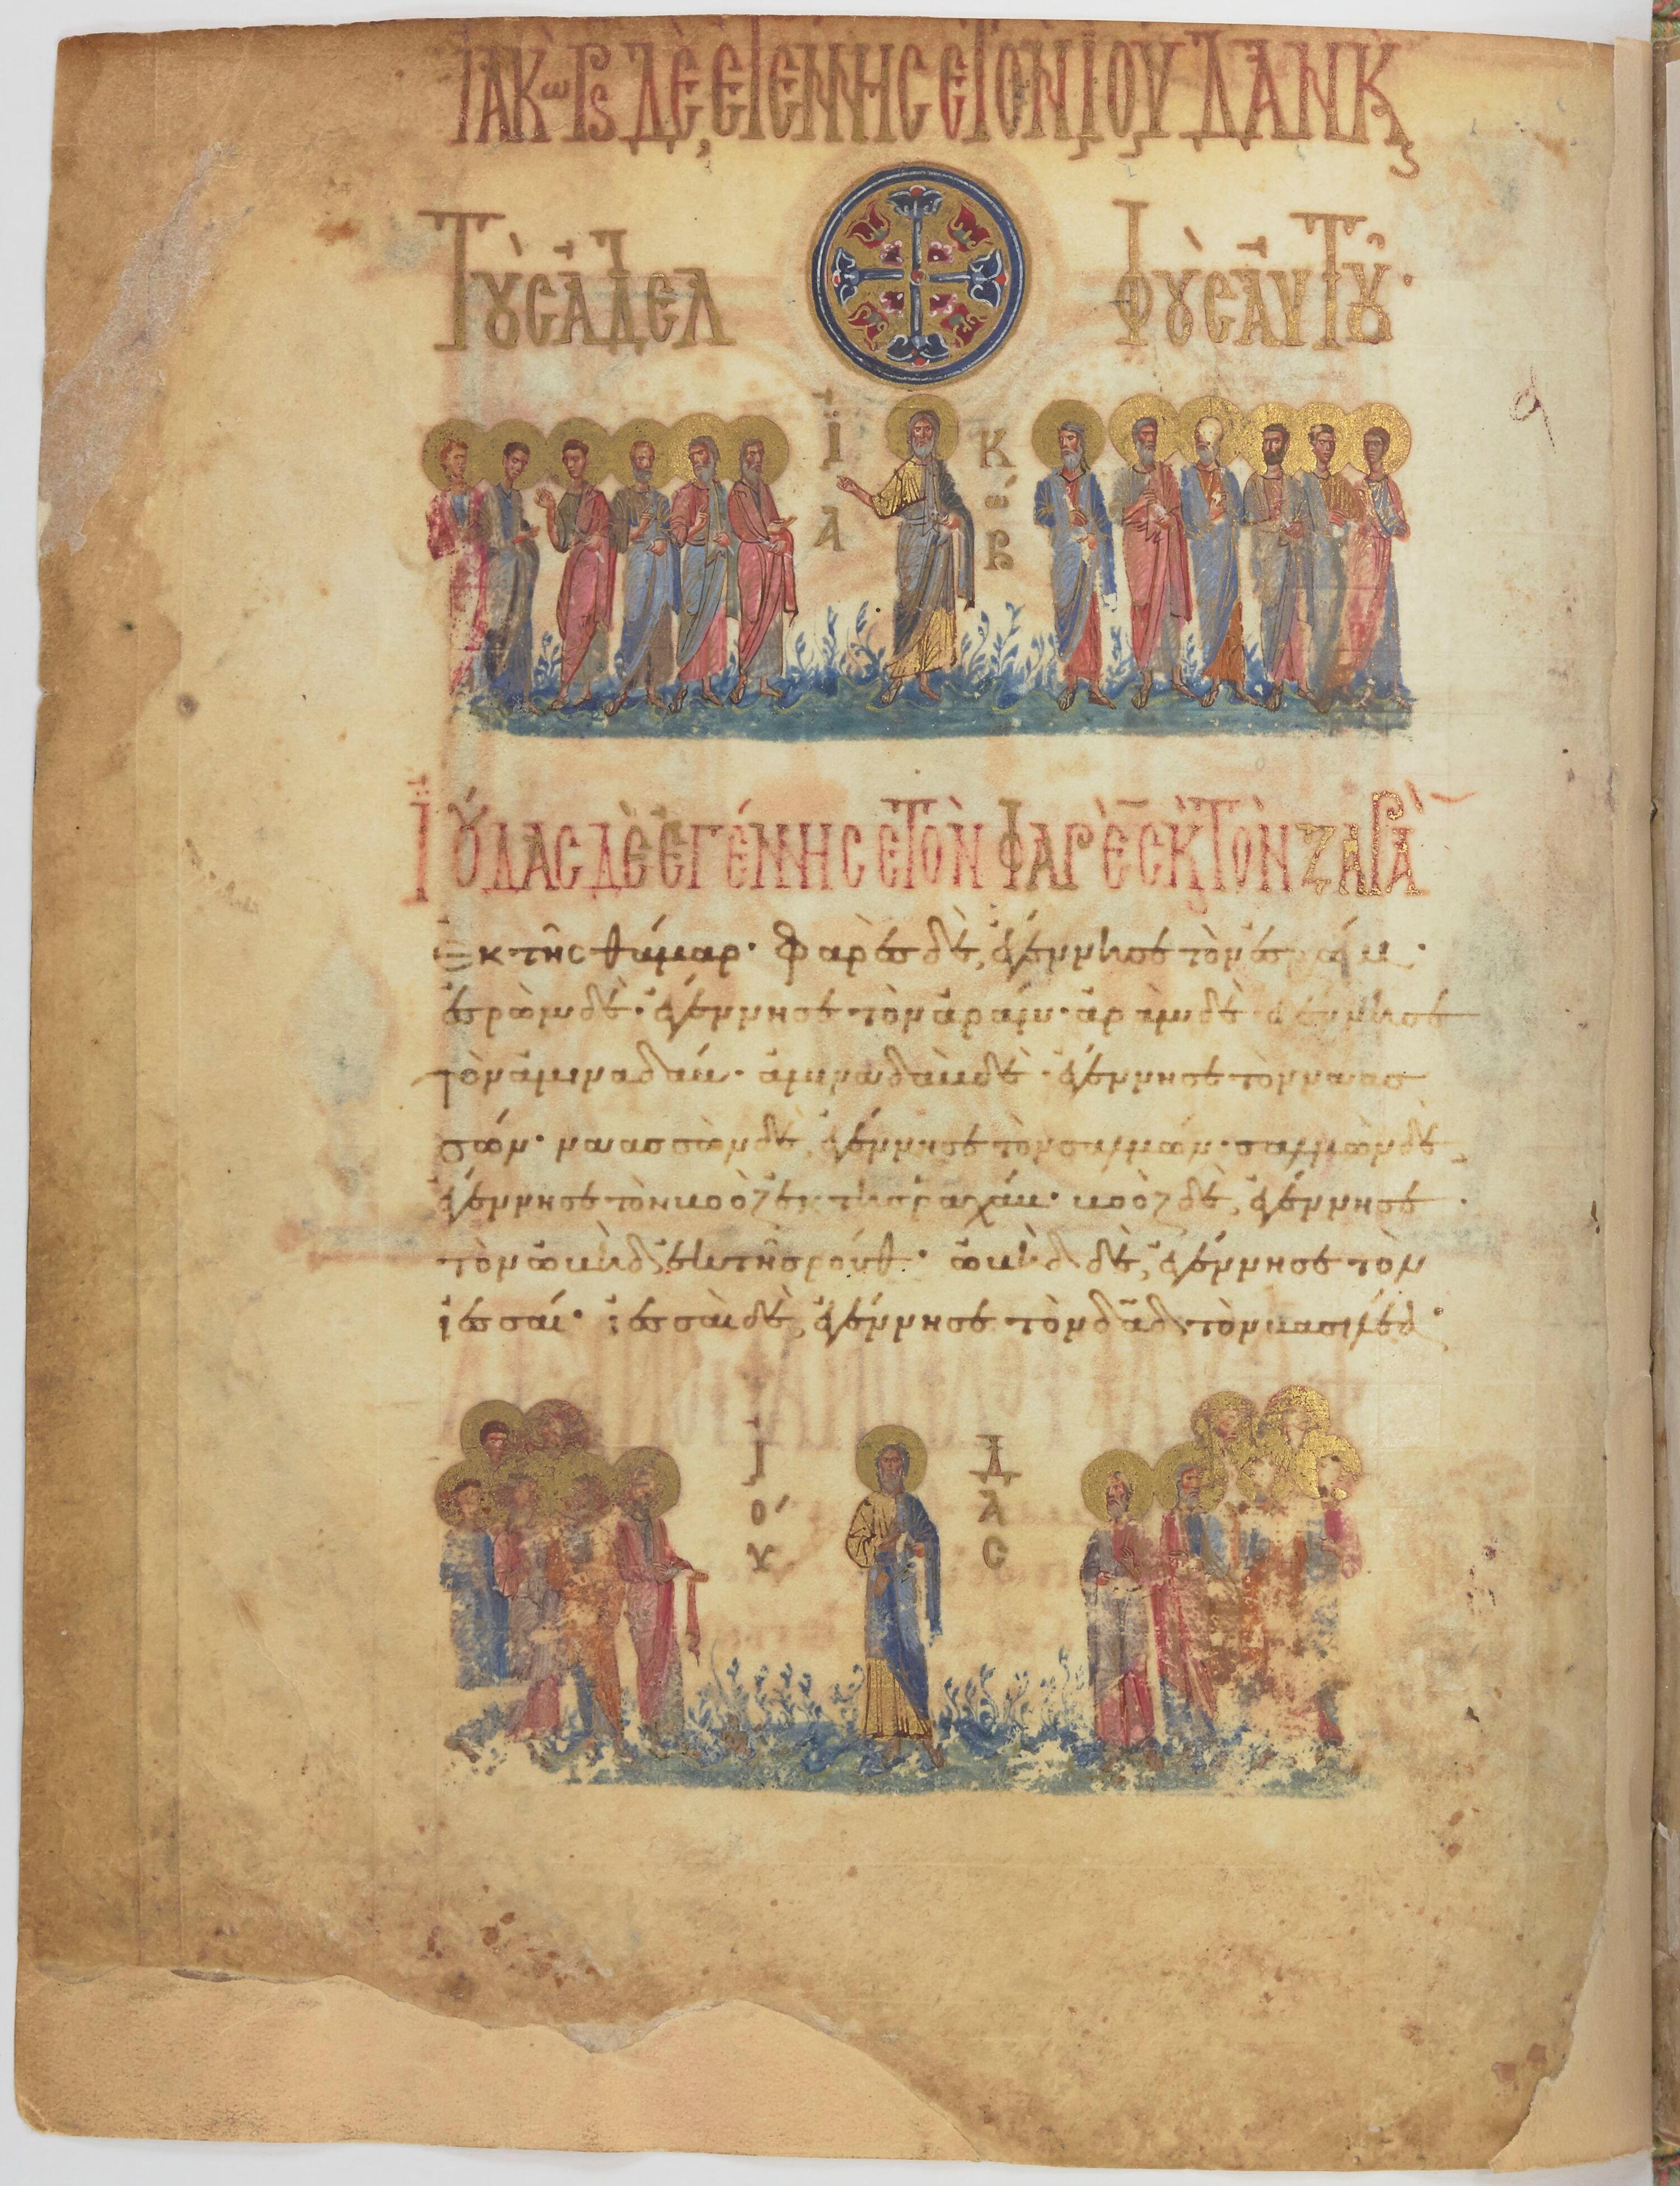 ἸΑΚὼΒ ΔῈ ἘΓΈΝΝΗϹΕ ΤῸΝ ἸΟΎΔΑΝ Κ
ΤΟῪϹ ἈΔΕΛ ΦΟῪϹ ΑΥ̓ΤΟΥ͂·
ἸΑ ΚώΒ
ἸΟΎΔΑϹ ΔῈ ἘΓΈΝΝΗϹΕ ΤῸΝ ΦΑΡῈϹ Κ ΤῸΝ ΖΑΡᾺ
Ἐκ τῆς θάμαρ· Φαρὲς δὲ, ἐγέννησε τὸν ἐσρώμ·
ἐσρὼμ δὲ· ἐγέννησε τὸν ἀράμ· ἀρὰμ δὲ ἐγέννησε
τὸν ἀμιναδάβ· ἀμιναδὰβ δὲ· ἐγέννησε τὸν ναασ
σών· ναασσὼν δὲ, ἐγέννησε τὸν σαλμών· σαλμὼν δὲ
ἐγέννησε τὸν βοὸζ ἐκ τῆς ῥαχάβ· βοὸζ δὲ, ἐγέννησε
τὸν ὠβὴδ ἐκ τῆς ῥούθ· ὠβὴδ δὲ, ἐγέννησε τὸν
ἰεσσαί· ἰεσσαὶ δὲ, ἐγέννησε τὸν δᾱδ τὸν βασιλέα·
ἸΟΎ ΔΑϹ